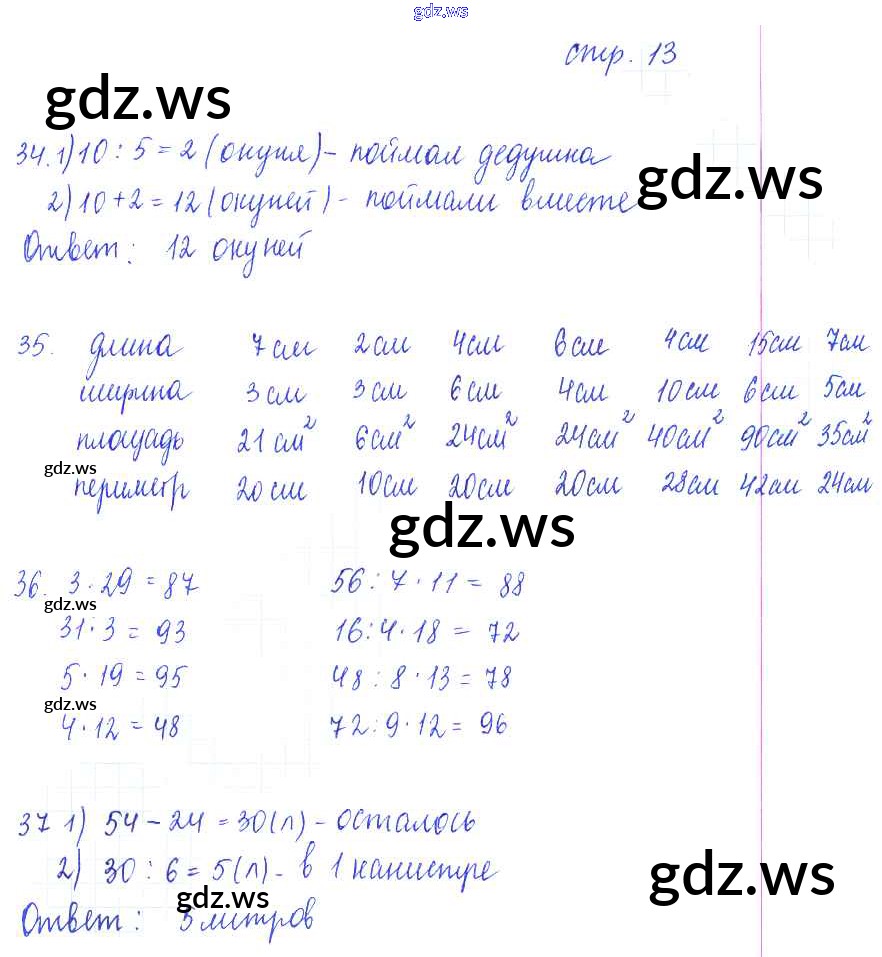 gdz.ws
стр. 13
gdz.ws
34. 1) 10 : 5 = 2 (окуня) - поймал дедушка
gdz.ws
2) 10 + 2 = 12 (окуней) - поймали вместе
Ответ: 12 окуней
35. длина 7 см 2 см 4 см 6 см 4 см 15 см 7 см
ширина 3 см 3 см 6 см 4 см 10 см 6 см 5 см
площадь 21 см² 6 см² 24 см² 24 см² 40 см² 90 см² 35 см²
gdz.ws
периметр 20 см 10 см 20 см 20 см 28 см 42 см 24 см
gdz.ws
36. 3 · 29 = 87 56 : 7 · 11 = 88
gdz.ws
31 · 3 = 93 16 : 4 · 18 = 72
5 · 19 = 95 48 : 8 · 13 = 78
gdz.ws
4 · 12 = 48 72 : 9 · 12 = 96
37 1) 54 - 24 = 30 (л) - осталось
2) 30 : 6 = 5 (л) - в 1 канистре
gdz.ws
gdz.ws
Ответ: 5 литров